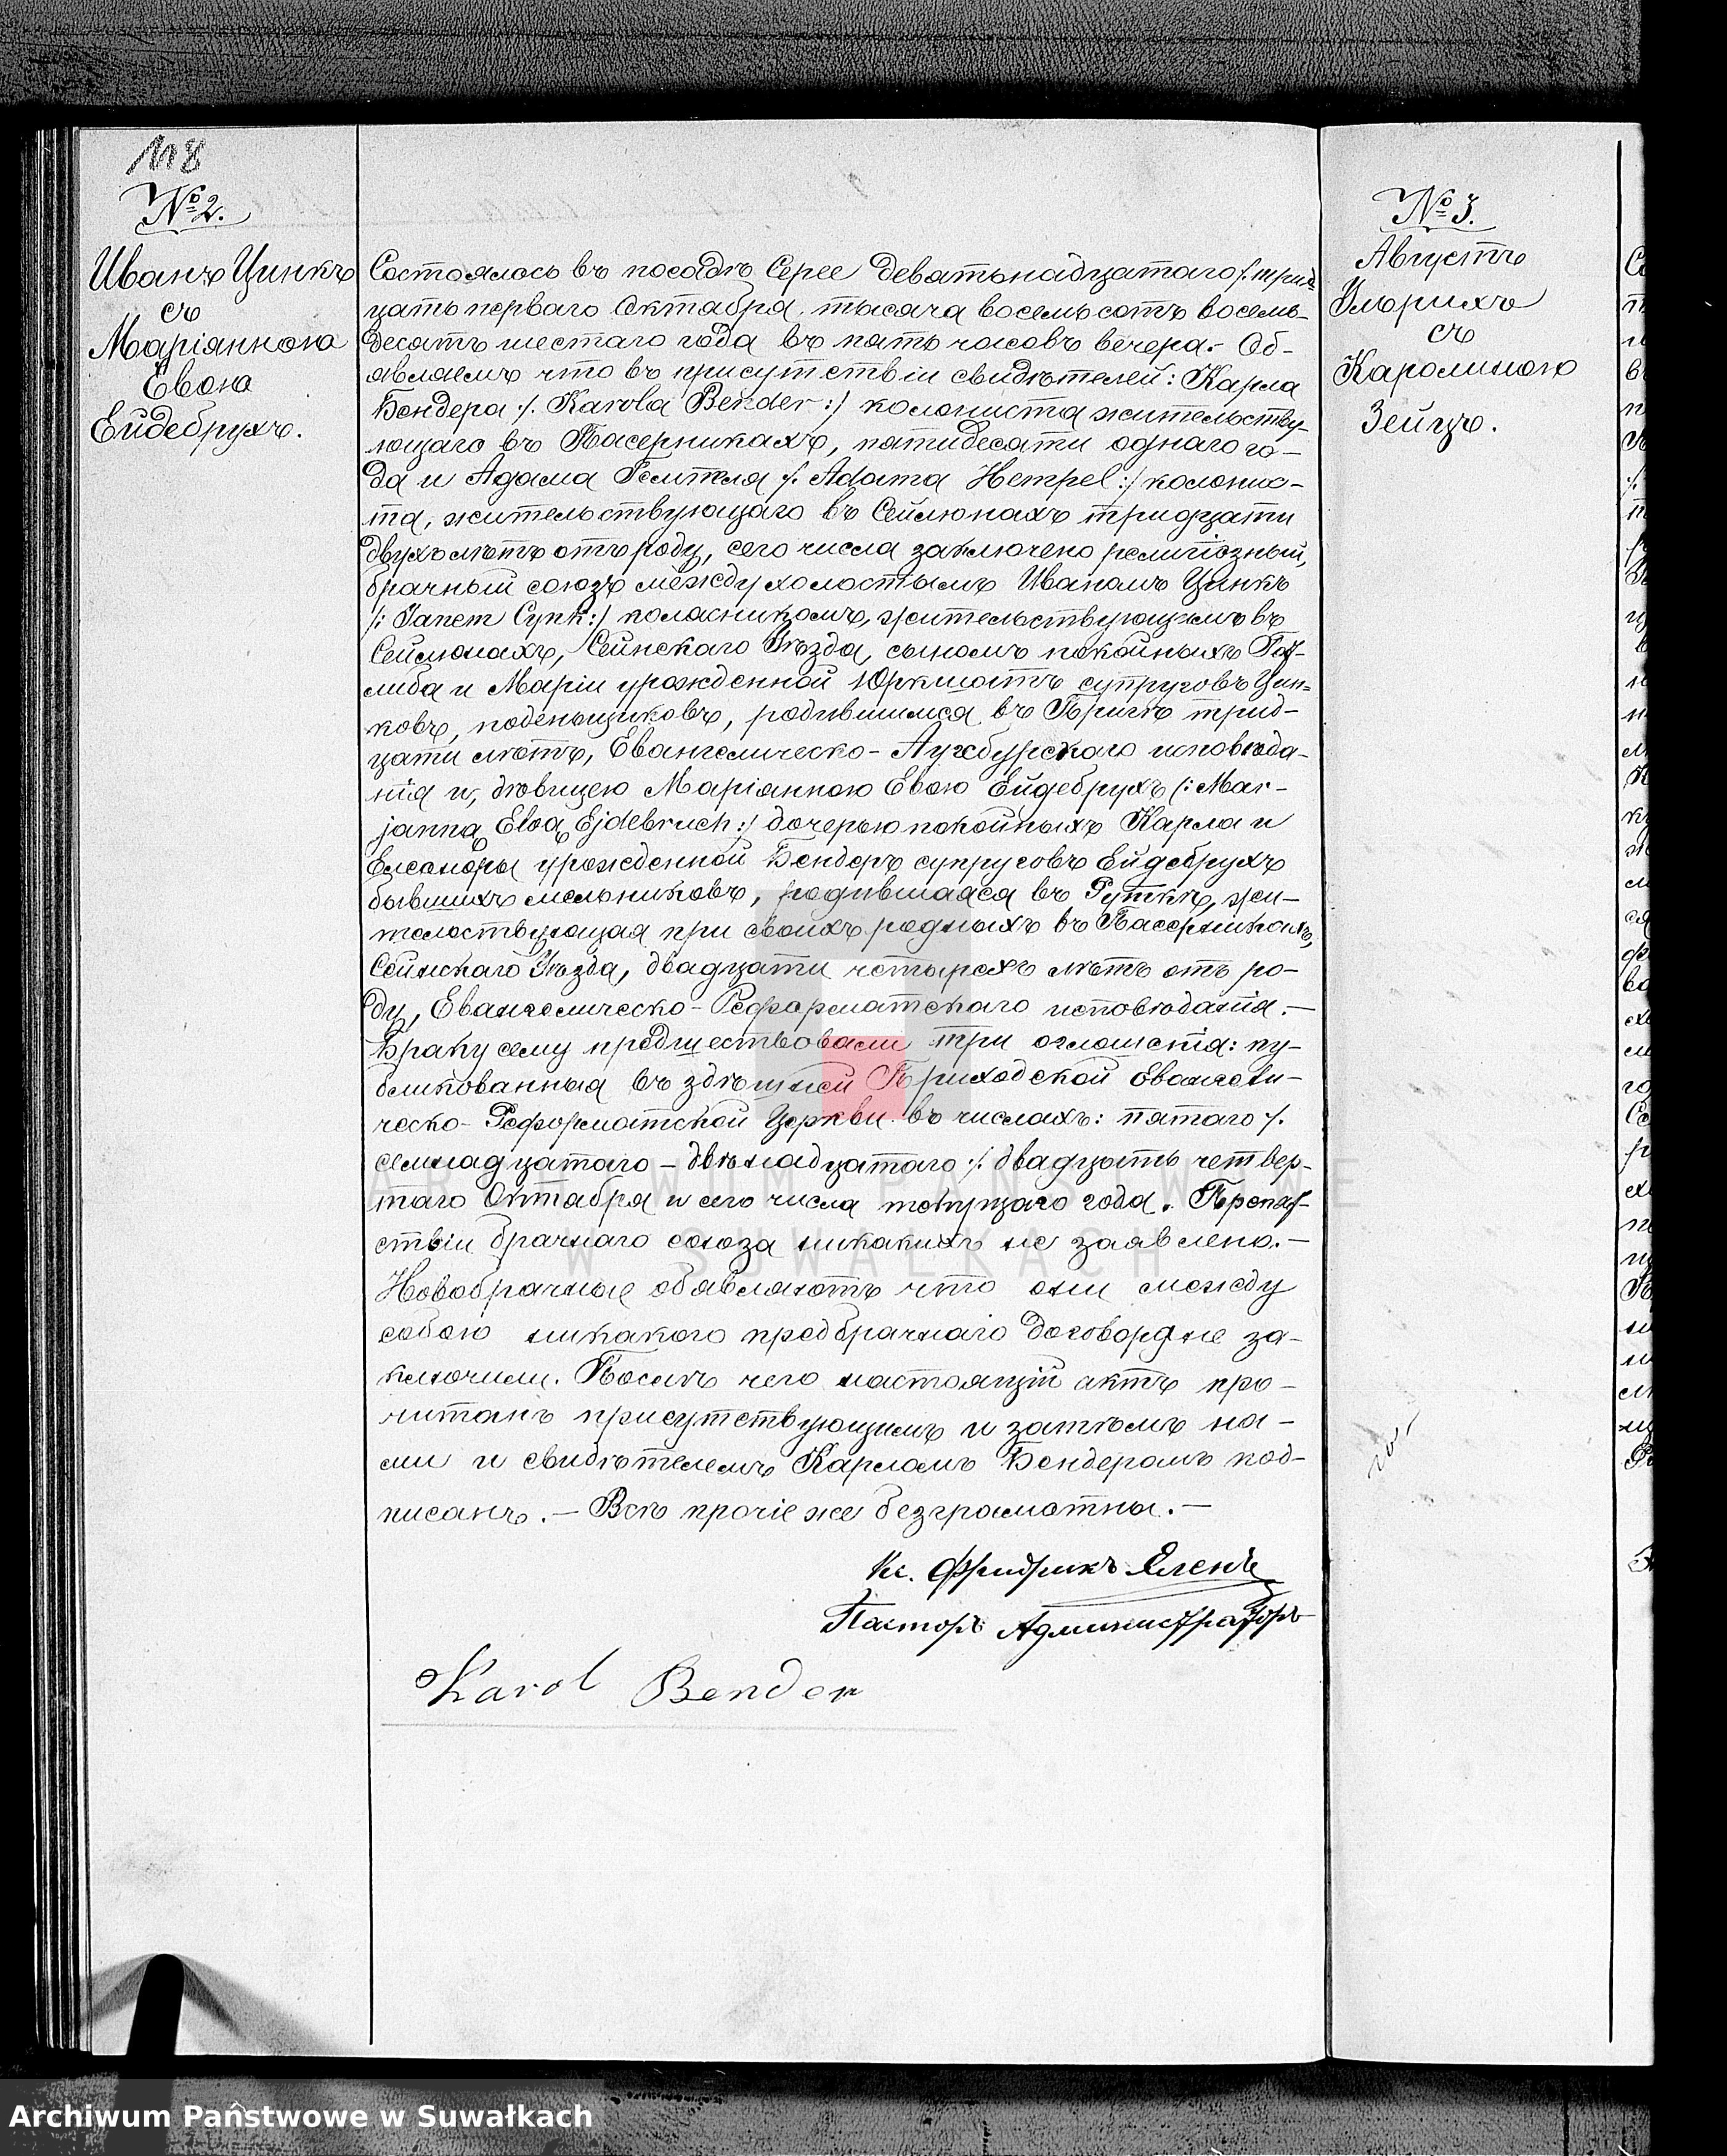 118
№ 2.
Иванъ Цинкъ
съ
Маріянною
Евою
Ейдебрухъ.
Состоялось въ посадѣ Серее девятьнадцатаго /: трид-
цать перваго Октября, тысяча восемьсотъ восемь-
десятъ шестаго года въ пять часовъ вечера.- Об-
являемъ что въ присутствіи свидѣтелей: Карла
Бендера /: Karola Bender :/ колониста жительству-
ющаго въ Пасерникахъ, пятидесяти однаго го-
да и Адама Гемпеля /: Adama Hempel :/ колонис-
та, жительствующаго въ Сейлюнахъ тридцати
двухъ лѣтъ отъ роду, сего числа заключено религіозный,
брачный союзъ между холостымъ Иваномъ Цинкъ
/: Janem Cynk :/ жительствующимъ въ
Сейлюнахъ, Сейнскаго Уѣзда, сыномъ покойныхъ Гот-
либа и Маріи урожденной супруговъ Цин-
ковъ, поденьщиковъ, родившимся въ тридцати
лѣтъ, Евангелическо-Аугсбурскаго исповѣда-
нія и, дѣвицею Маріянною Евою Ейдебрухъ (: Mar-
janną Ewą Ejdebruch :/ дочерью покойныхъ Карла и
Елеоноры урожденной Бендеръ супруговъ Ейдебрухъ
бывшихъ мельниковъ, родившаяся въ Руткѣ, жи-
тельствующая при своихъ родныхъ въ Пасерникахъ,
Сейнскаго Уѣзда, двадцати четырехъ лѣтъ отъ ро-
ду, Евангелическо-Реформатскаго исповѣданія.-
Браку сему предшествовали три оглошенія: пу-
бликованныя въ здѣшней Приходской Евангели-
ческо-Реформатской Церкви въ числахъ: пятаго /.
семнадцатаго - двѣнадцатаго /. двадцать четвер-
таго Октября и сего числа текущаго года. Препят-
ствіи брачнаго союза никакихъ не заявлено.-
Новобрачные обявляютъ что они между
собою никакого предбрачнаго договора не за-
ключили. Послѣ чего настоящій актъ про-
читанъ присутствующимъ и затѣмъ на-
ми и свидѣтелемъ Карломъ Бендеромъ под-
писанъ.- Всѣ прочіе же безграмотны.-
Кс. Фридрихъ Еленъ
Пасторъ Администраторъ
Karol Bender
№ 3.
Августъ
Ульрихъ
съ
Каролиною
Зейцъ.
ARCHIWUM PAŃSTWOWE
W SUWAŁKACH
Archiwum Państwowe w Suwałkach